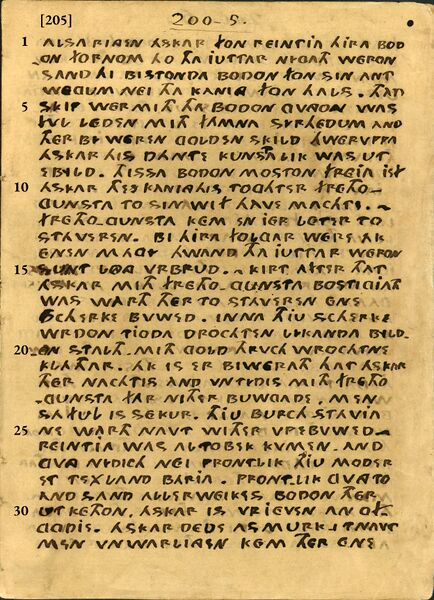 [205]
200-5.
1 ALSA RING ASKAR FON REINTJA HIRA BOD
ON FORNOM HO THA JUTTAR NIGATH WERON
SAND HI BISTONDA BODON FON SIN ANT
WEGUM NEI THA KANING FON HALS. THAT
5 SKIP WERMITH THA BODON GVNGON WAS
FVL LEDEN MITH FAMNA SYRHEDUM AND
THER BI WER EN GOLDEN SKILD HWERVPPA
ASKAR HIS DANTE KUNSTALIK WAS UT
EBILD. THISSA BODON MOSTON FREJA IEF
10 ASKAR THES KANING HIS TOGHTER FRETHO-
GUNSTA TO SIN WIF HAVE MACHTE.-
FRETHO-GUNSTA KEM EN JER LETER TO
STAVEREN. BI HJRA FOLGAR WERE AK
ENEN MAGI HWAND THA JUTTAR WERON
15 SUNT LONG VRBRUD. KIRT AFTER THAT
ASKAR MITH FRETHO-GUNSTA BOSTIGJATH
WAS WARTH THER TO STAVEREN ENE
SCHERKE BUWED. INNA THJU SCHERKE
WRDON TJODA DROCHTEN LIKANDA BILD-
20 ON STALTH MITH GOLD THRUCH WROCHTNE
KLATHAR. AK IS ER BIWERATH THAT ASKAR
THER NACHTIS AND VNTIDIS MITH FRETHO-
GUNSTA FAR NITHER BUWGADE. MEN
SA FUL IS SEKUR. THJU BURCH STAVIA
25 NE WARTH NAVT WITHER VPEBUWED.-
REINTJA WAS AL TO BEK KVMEN. AND
GVNG NIDICH NEI PRONTLIK THJU MODER
ET TEXLAND BARJA. PRONTLIK GVNG TO
AND SAND ALLERWEIKES BODON THER
30 UTKETHON, ASKAR IS VRJEVEN AN OF-
GODIE. ASKAR DEDE AS MURK I T NAVT
MEN VNWARLINGA KEM THER ENE